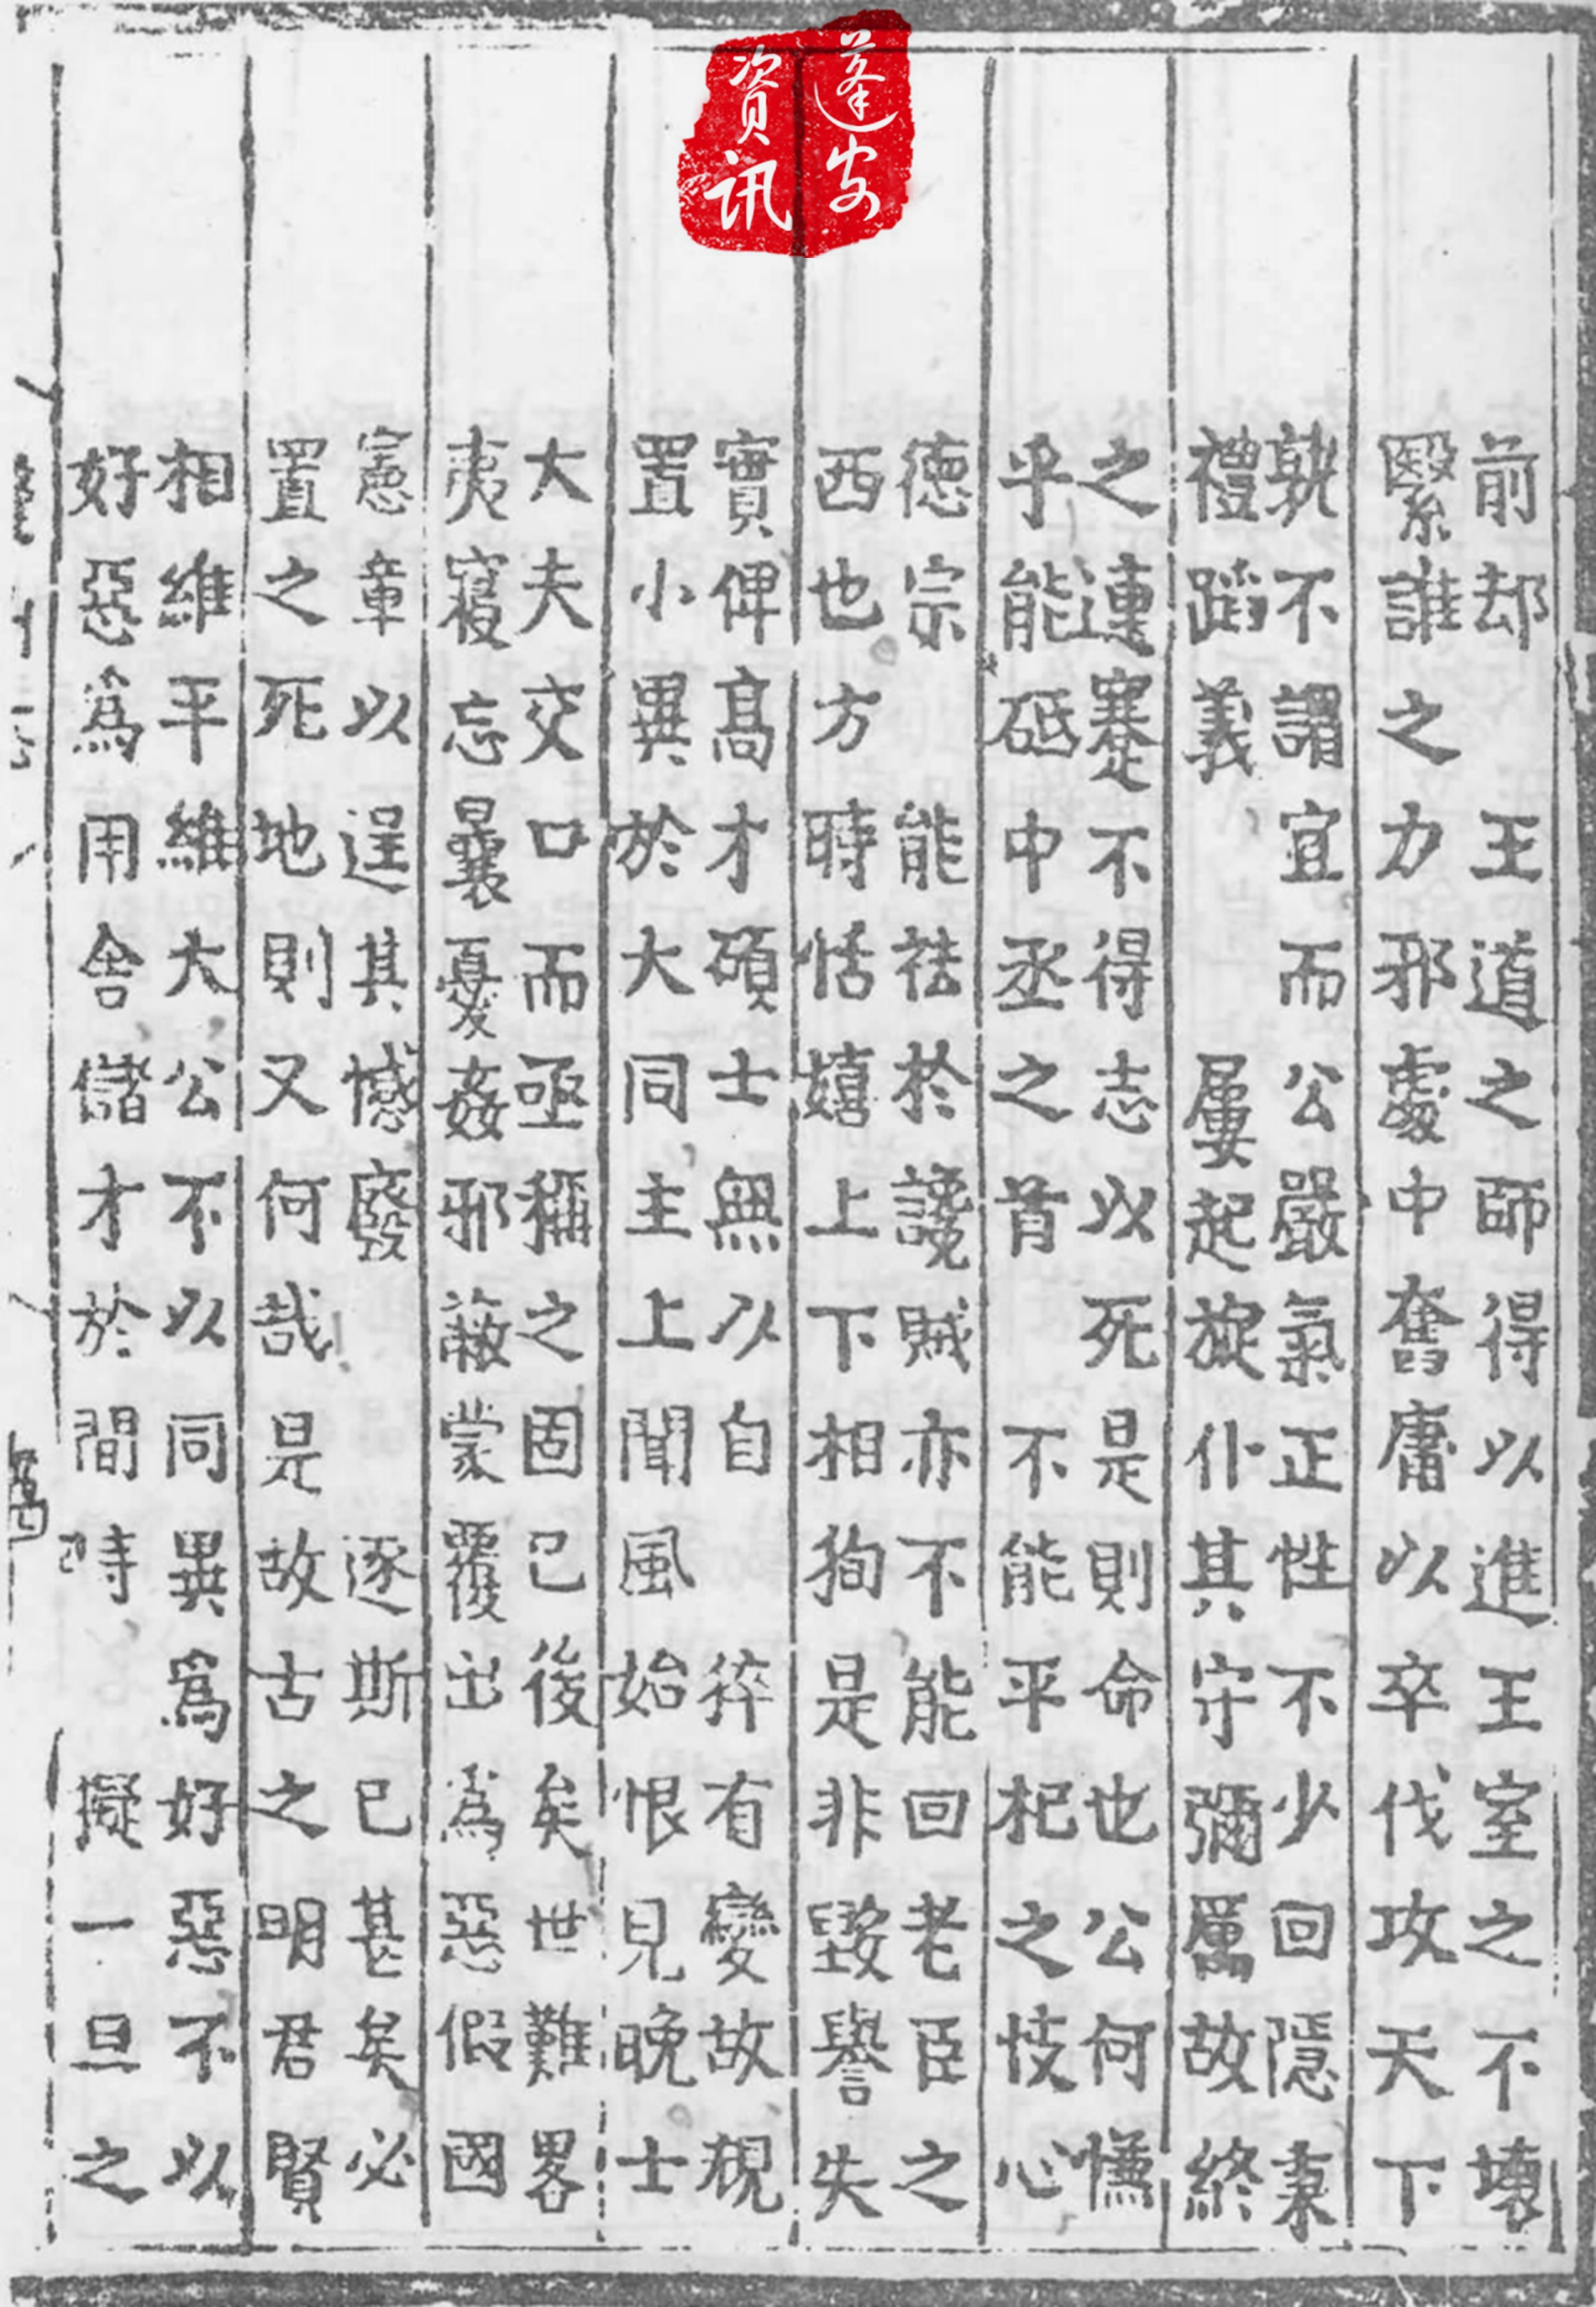 蓬安
資訊
前却王道之師得以進王室之不壊
緊誰之力邪處中奮庸以卒伐攻天下
孰不謂宜而公嚴氣正性不少回隱秉
禮蹈義屢起旋仆其守彌厲故終
之連蹇不得志以死是則命也公何慊
乎能砥中丞之首不能平杞之忮心
德宗能祛於讒賊亦不能回老臣之
西也方時恬嬉上下相狥是非毀譽失
實俾高才碩士無以自猝有變故覡
置小異於大同主上聞風始恨見晚士
大夫交口而亟稱之固已後矣世難畧
夷寢忘曩憂姦邪蔽蒙覆出為惡假國
憲章以逞其憾廢逐斯已甚矣必
置之死地則又何哉是故古之明君賢
相維平維大公不以同異為好惡不以
好惡為用舍儲才於間時擬一旦之